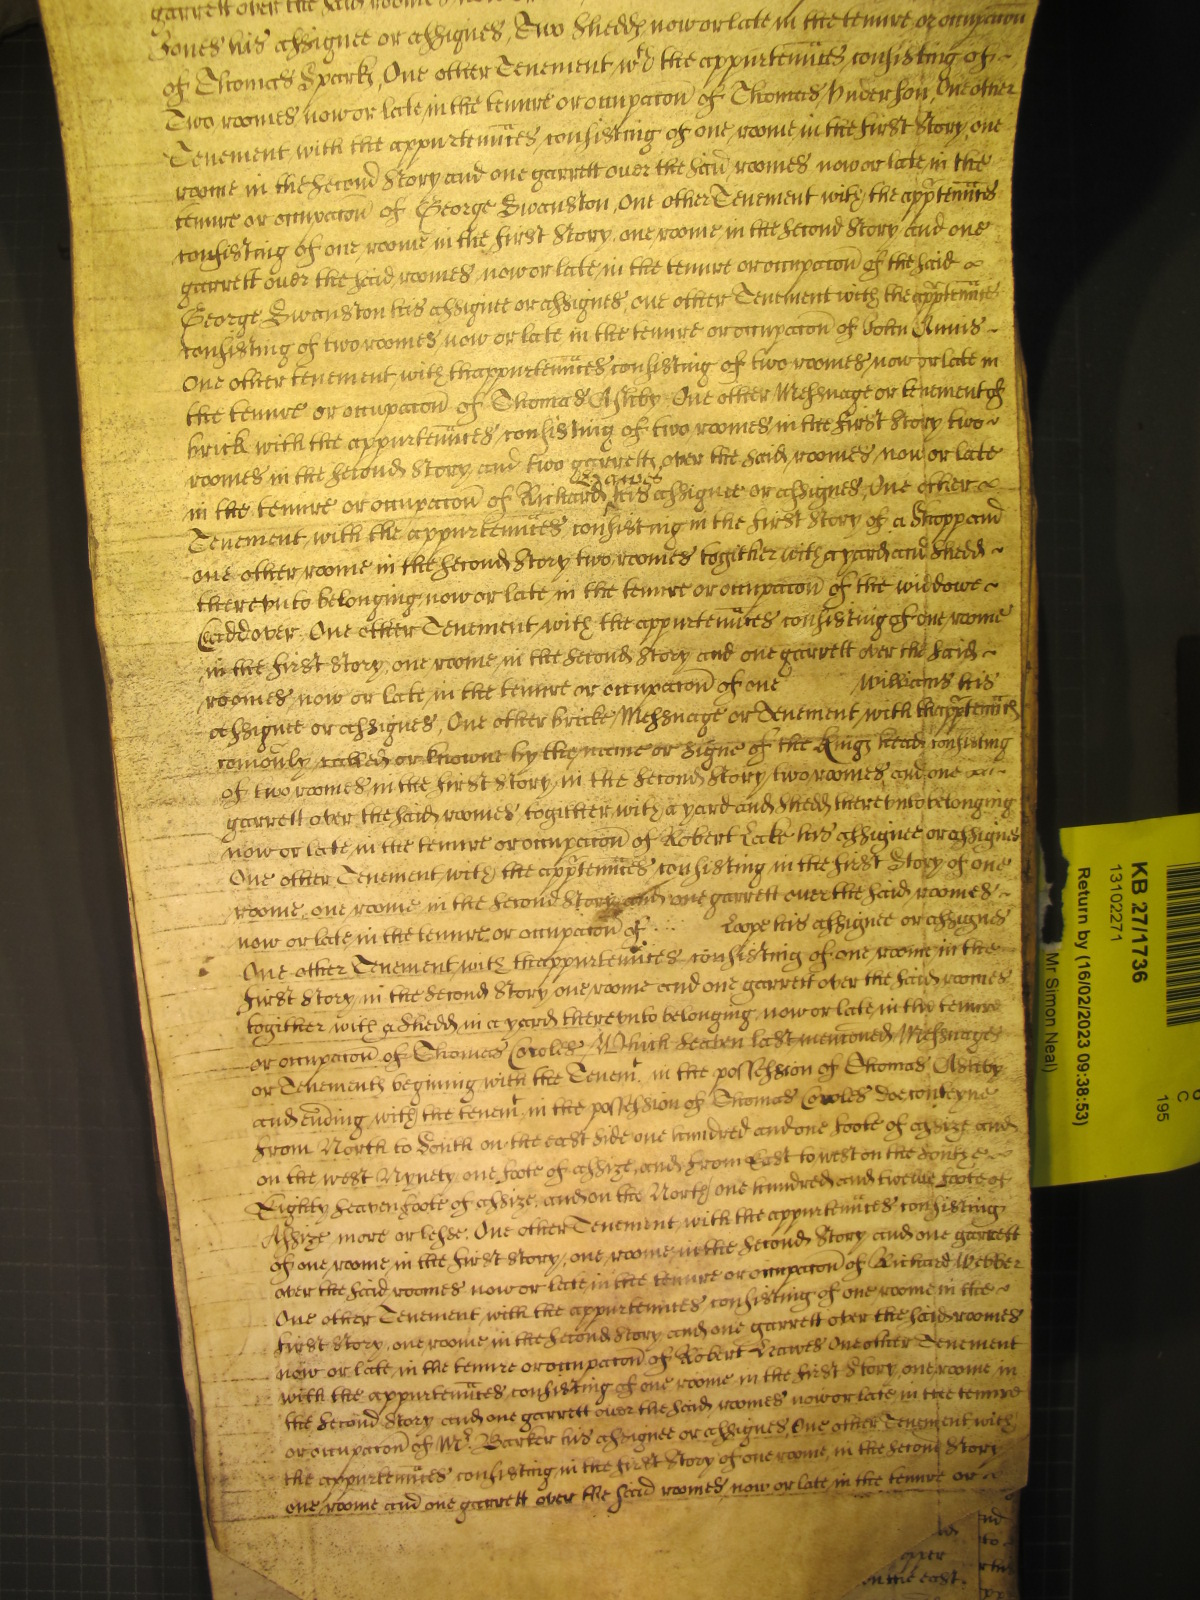 garrett over the said roomes now or
Jones his assignee or assignes, Two Shedds now or late in the tenure or occupacon
of Thomas Sparks, One other Tenement wth the appurtennces consisting of
Two roomes now or late in the tenure or occupacon of Thomas Vnderhou, One other
Tenement with the appurtennces consisting of one roome in the first Story, one
roome in the second Story and one garrett over the said roomes now or late in the
tenure or occupacon of George Swanston, One other Tenement with the apptennces
consisting of one roome in the first Story, one roome in the second Story and one
garrett over the said roomes, now or late in the tenure or occupacon of the said
George Swanston his assignee or assignes, one other Tenement with the apptennces
consisting of two roomes now or late in the tenure or occupacon of John Annis
One other tenement with thappurtennces consisting of two roomes now or late in
the tenure or occupacon of Thomas Ashby One other Messuage or tenement of
brick with the appurtennces consisting of two roomes in the first Story two
roomes in the second Story and two garretts over the said roomes now or late
in the tenure or occupacon of Richard his assignee or assignes, One other
Tenement with the appurtennces consisting in the first Story of a Shopp and
one other roome in the second Story two roomes together with a yard and shedd
therevnto belonging now or late in the tenure or occupacon of the widdowe
One other Tenement with the appurtennces consisting of one roome
in the first Story, one roome in the second Story and one garrett over the said
roomes now or late in the tenure or occupacon of one Williams his
assignee or assignes, One other bricke Messuage or Tenement with thapptennces
comonly called or knowne by the name or signe of the Kings head consisting
of two roomes in the first Story, in the second Story two roomes and one
garrett over the said roomes together with a yard and shedd therevnto belonging
now or late in the tenure or occupacon of Robert Lake his assignee or assignes
One other Tenement with the apptennces consisting in the first Story of one
roome, one roome in the second Story and one garrett over the said roomes
now or late in the tenure or occupacon of Loope his assignee or assignes
One other Tenement with thappurtennces consisting of one roome in the
first Story, in the second Story one roome and one garrett over the said roomes
togither with a Shedd in a yard therevnto belonging now or late in the tenure
or occupacon of Thomas Cowles Which seaven last mencioned Messuages
or Tenements begining with the Tenemt in the possession of Thomas Ashby
and ending with the tenemt in the possession of Thomas Cowles doe conteyne
from North to South on the east side one hundred and one foote of assize and
on the west Nynety one foote of assize, and from East to west on the Southe
Eighty seaven foote of assize, and on the North one hundred and twelve foote of
Assize more or lesse. One other Tenement with the appurtennces consisting
of one roome in the first Story, one roome in the second Story and one garrett
over the said roomes now or late in the tenure or occupacon of Richard Webber
One other Tenement with the appurtennces consisting of one roome in the
first Story, one roome in the second Story and one garrett over the said roomes
now or late in the tenure or occupacon of Robert Leawes One other Tenement
with the appurtennces consisting of one roome in the first Story, one roome in
the second Story and one garrett over the said roomes now or late in the tenure
or occupacon of Mr Barker his assignee or assignes One other Tenement with
the appurtennces consisting in the first Story of one roome, in the second Story
one roome and one garrett over the said roomes now or late in the tenure or
over
on the east
KB 27/1736
13102271
Return by (16/02/2023 09:38:53)
Mr Simon Neal)
195